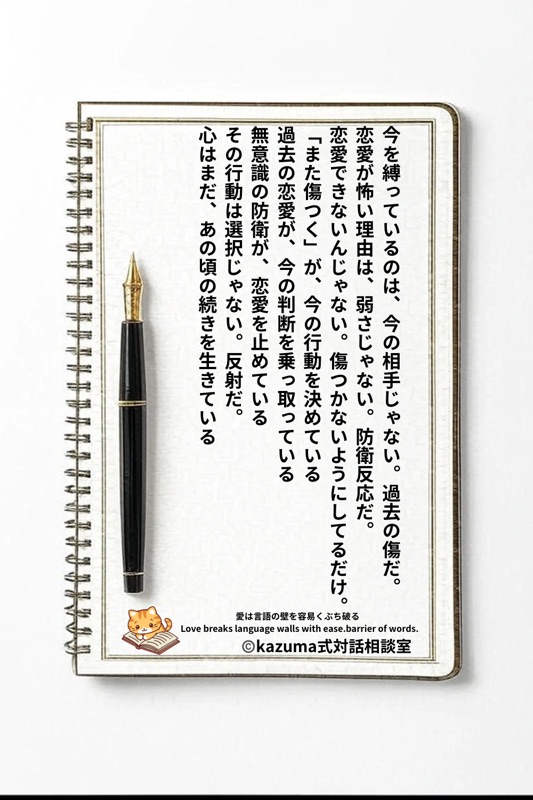 今を縛っているのは、今の相手じゃない。過去の傷だ。
恋愛が怖い理由は、弱さじゃない。防衛反応だ。
恋愛できないんじゃない。傷つかないようにしてるだけ。
「また傷つく」が、今の行動を決めている
過去の恋愛が、今の判断を乗っ取っている
無意識の防衛が、恋愛を止めている
その行動は選択じゃない。反射だ。
心はまだ、あの頃の続きを生きている
愛は言語の壁を容易くぶち破る
Love breaks language walls with ease.barrier of words.
©kazuma式対話相談室